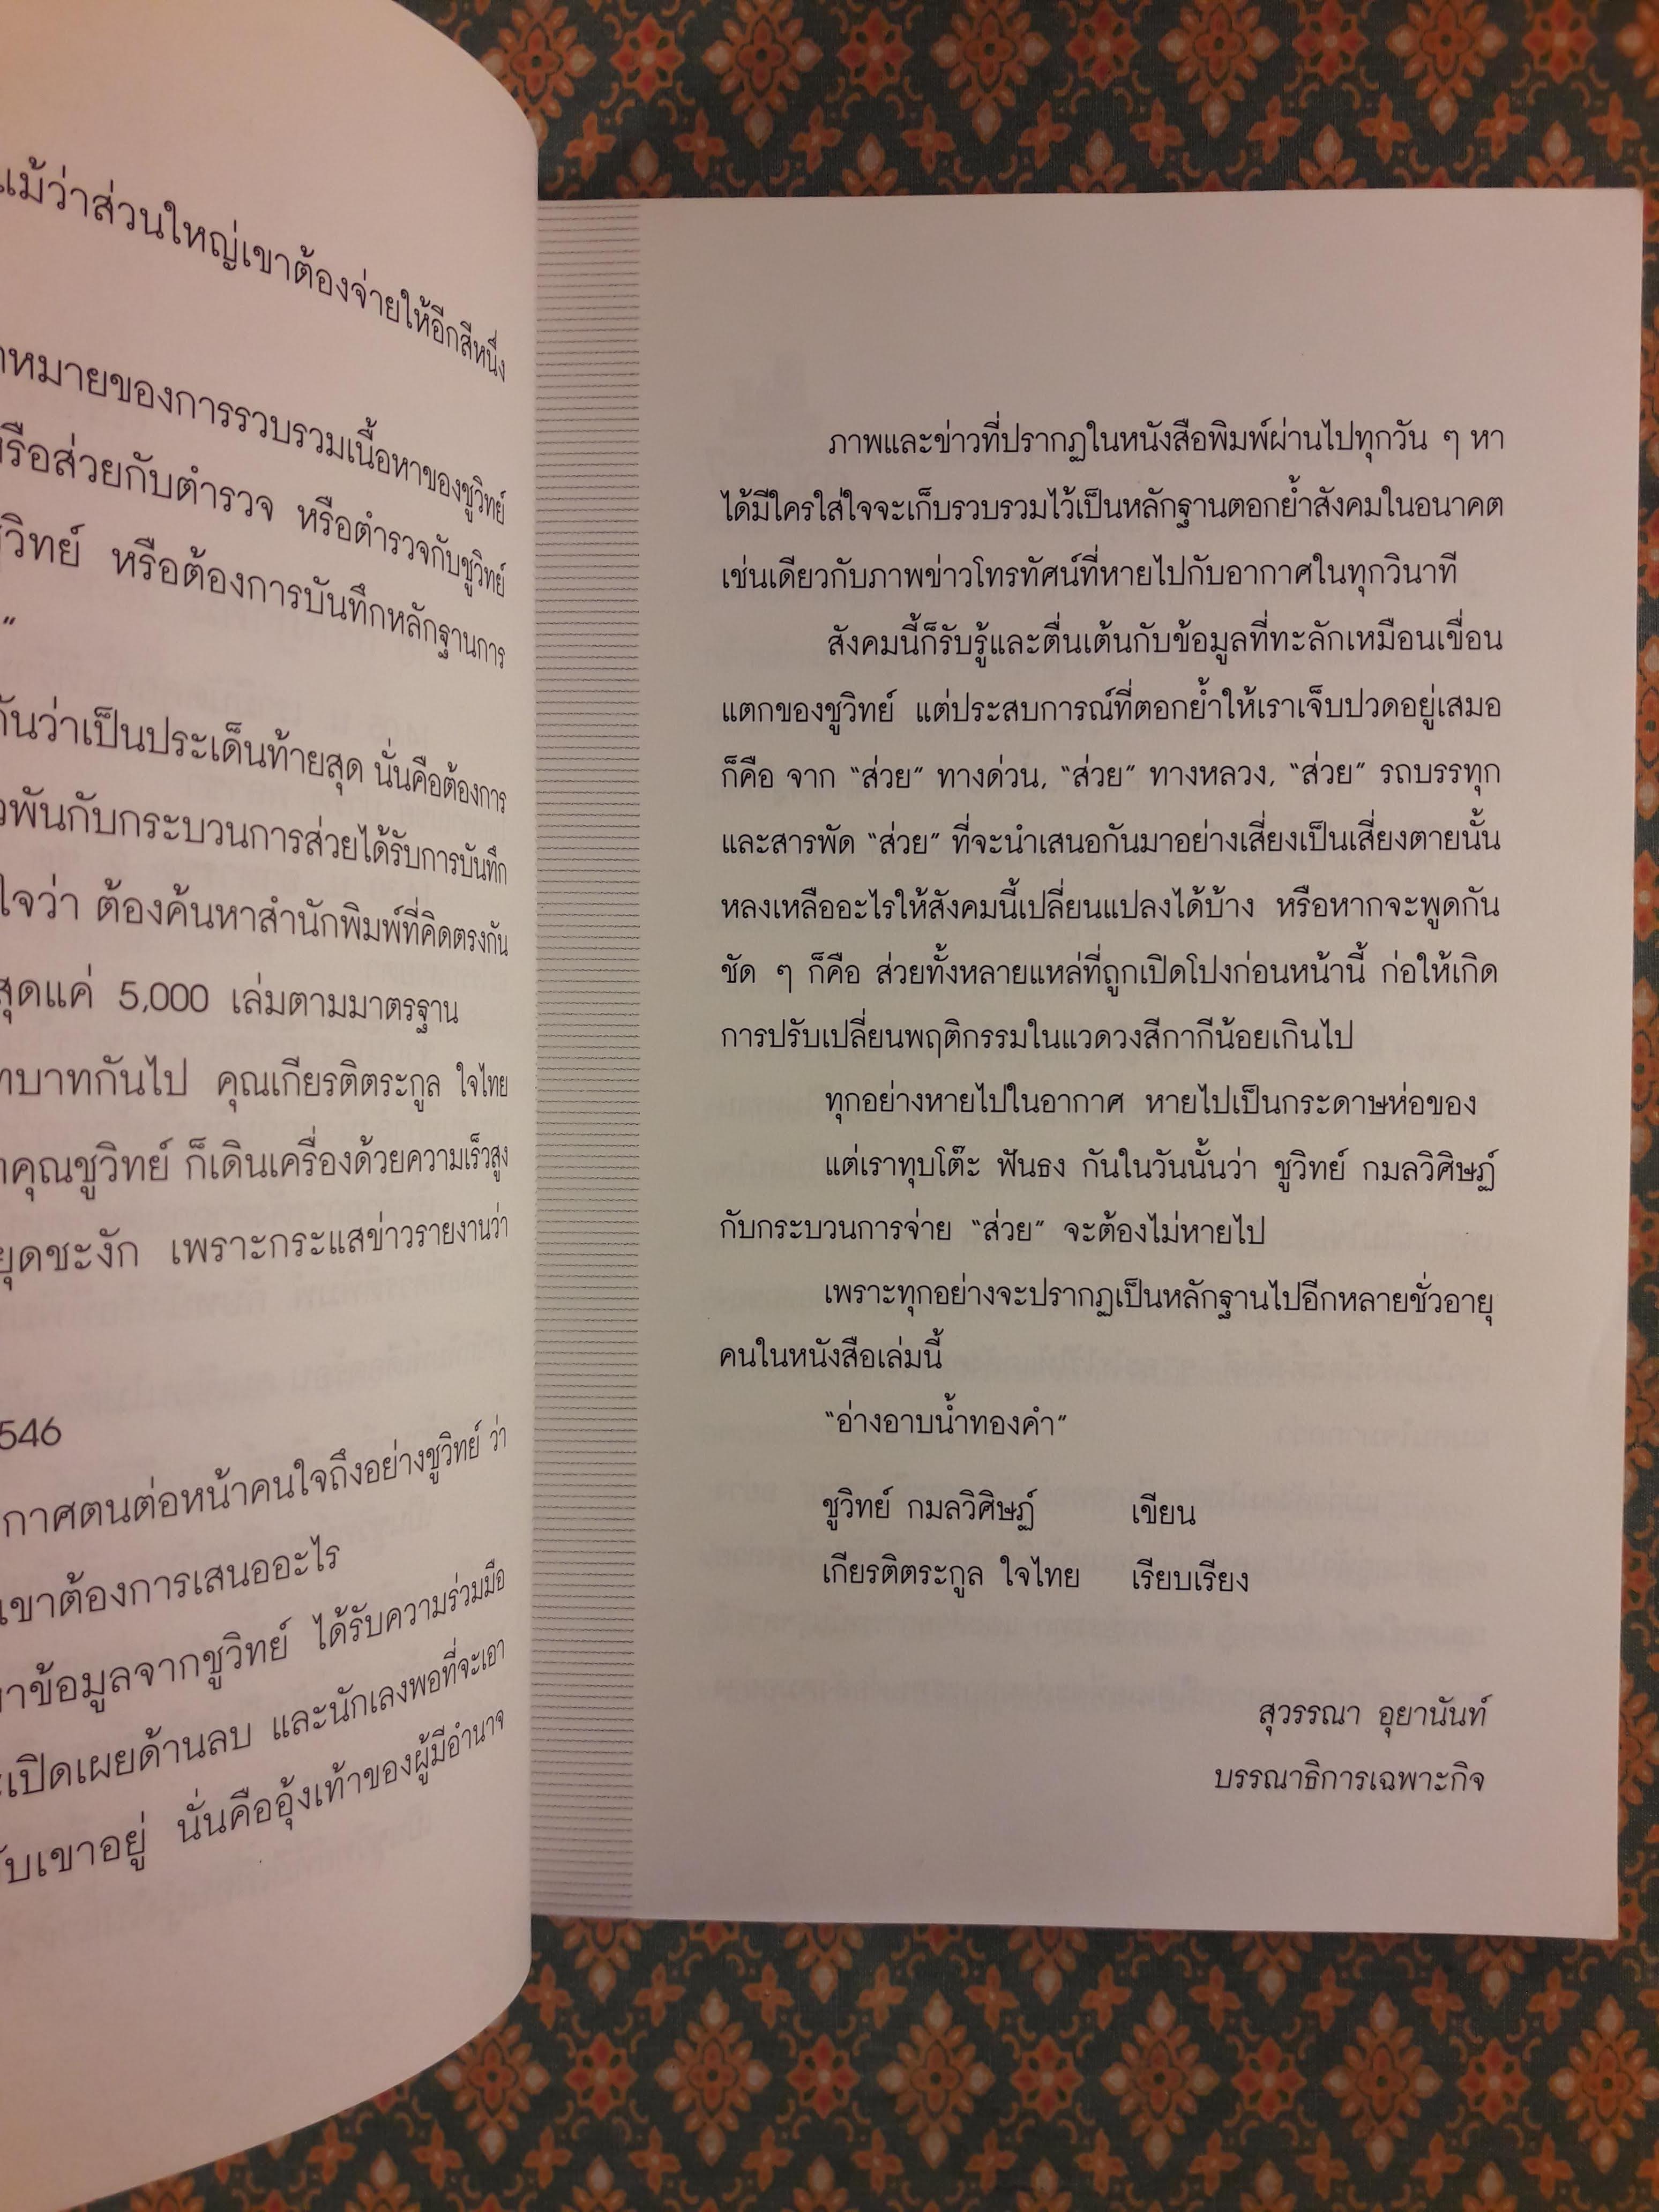 แม้ว่าส่วนใหญ่เขาต้องจ่ายให้อีกสีหนึ่ง
หมายของการรวบรวมเนื้อหาของชูวิทย์
หรือส่วยกับตำรวจ หรือตำรวจกับชูวิทย์
ชูวิทย์ หรือต้องการบันทึกหลักฐานการ
”
กันว่าเป็นประเด็นท้ายสุด นั่นคือต้องการ
พันกับกระบวนการส่วยได้รับการบันทึก
ใจว่า ต้องค้นหาสำนักพิมพ์ที่คิดตรงกัน
สุดแค่ 5,000 เล่มตามมาตรฐาน
บาทกันไป คุณเกียรติตระกูล ใจไทย
คุณชูวิทย์ ก็เดินเครื่องด้วยความเร็วสูง
หยุดชะงัก เพราะกระแสข่าวรายงานว่า
546
กาศตนต่อหน้าคนใจถึงอย่างชูวิทย์ ว่า
เขาต้องการเสนออะไร
ข้อมูลจากชูวิทย์ ได้รับความร่วมมือ
เปิดเผยด้านลบ และนักเลงพอที่จะเอา
เขาอยู่ นั่นคืออุ้งเท้าของผู้มีอำนาจ
ภาพและข่าวที่ปรากฏในหนังสือพิมพ์ผ่านไปทุกวัน ๆ หา
ได้มีใครใส่ใจจะเก็บรวบรวมไว้เป็นหลักฐานตอกย้ำสังคมในอนาคต
เช่นเดียวกับภาพข่าวโทรทัศน์ที่หายไปกับอากาศในทุกวินาที
สังคมนี้ก็รับรู้และตื่นเต้นกับข้อมูลที่ทะลักเหมือนเขื่อน
แตกของชูวิทย์ แต่ประสบการณ์ที่ตอกย้ำให้เราเจ็บปวดอยู่เสมอ
ก็คือ จาก “ส่วย” ทางด่วน, “ส่วย” ทางหลวง, “ส่วย” รถบรรทุก
และสารพัด “ส่วย” ที่จะนำเสนอกันมาอย่างเสี่ยงเป็นเสี่ยงตายนั้น
หลงเหลืออะไรให้สังคมนี้เปลี่ยนแปลงได้บ้าง หรือหากจะพูดกัน
ชัด ๆ ก็คือ ส่วยทั้งหลายแหล่ที่ถูกเปิดโปงก่อนหน้านี้ ก่อให้เกิด
การปรับเปลี่ยนพฤติกรรมในแวดวงสีกากีน้อยเกินไป
ทุกอย่างหายไปในอากาศ หายไปเป็นกระดาษห่อของ
แต่เราทุบโต๊ะ ฟันธง กันในวันนั้นว่า ชูวิทย์ กมลวิศิษฏ์
กับกระบวนการจ่าย “ส่วย” จะต้องไม่หายไป
เพราะทุกอย่างจะปรากฏเป็นหลักฐานไปอีกหลายชั่วอายุ
คนในหนังสือเล่มนี้
“อ่างอาบน้ำทองคำ”
ชูวิทย์ กมลวิศิษฏ์ เขียน
เกียรติตระกูล ใจไทย เรียบเรียง
สุวรรณา อุยานันท์
บรรณาธิการเฉพาะกิจ